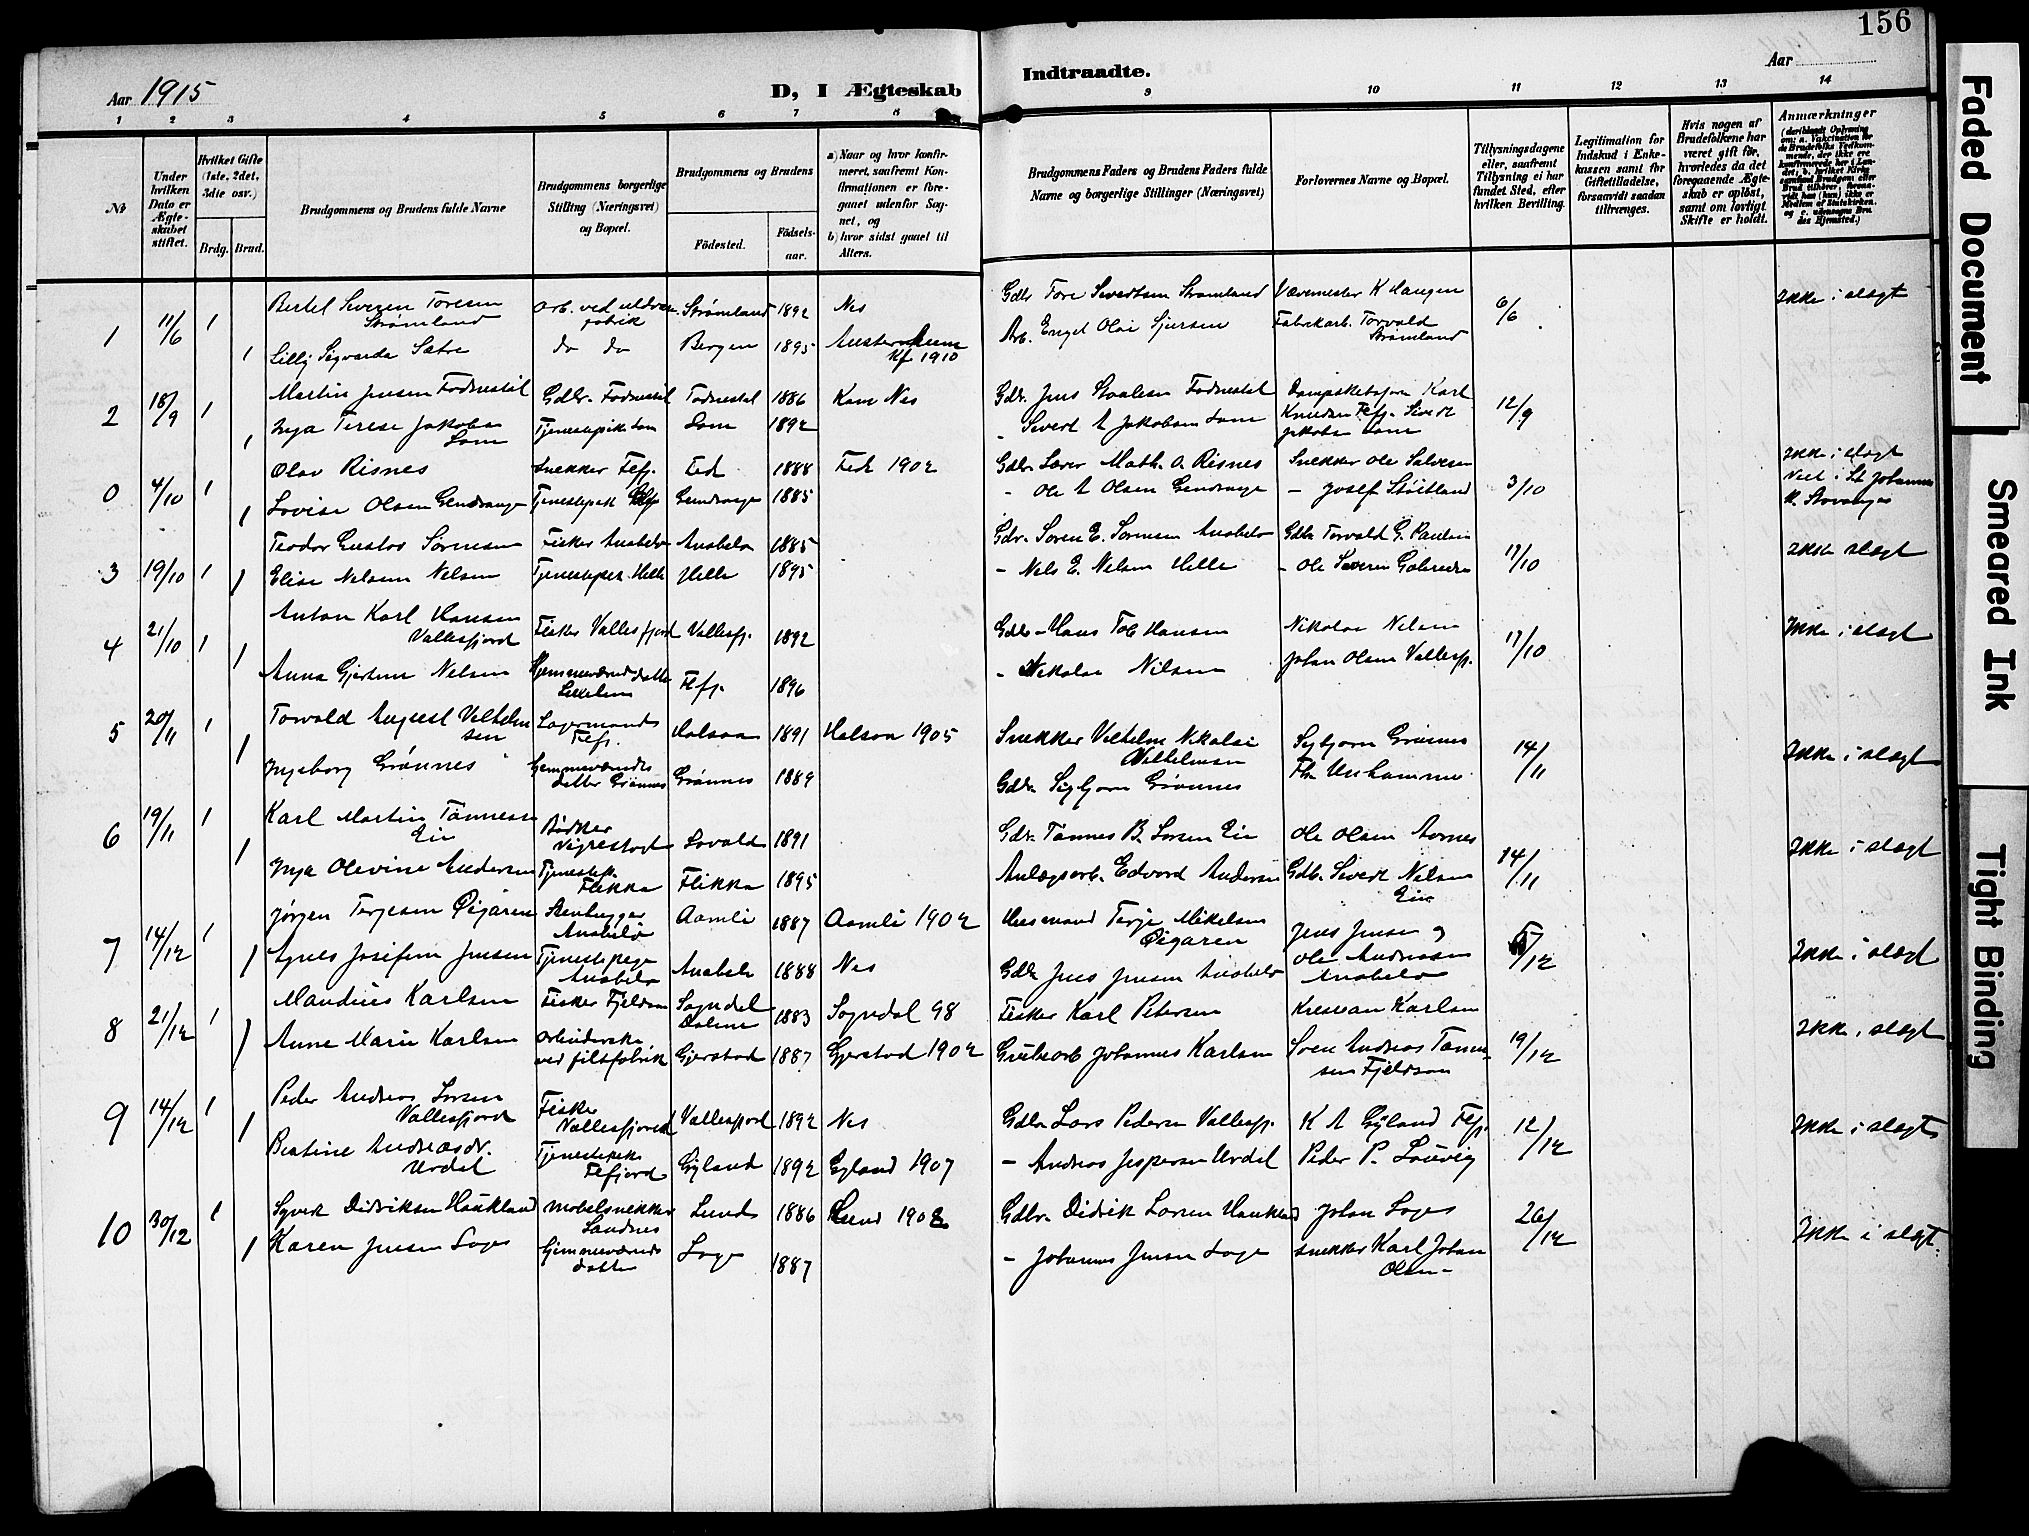 156
Aar 1915
D, I Ægteskab Indtraadte.
Aar
1 2 3 4 5 6 7 8 9 10 11 12 13 14
No
Under hvilken Dato er Ægteskabet stiftet.
Hvilket Gifte (1ste, 2det, 3die osv.)
Brdg. Brud.
Brudgommens og Brudens fulde Navne
Brudgommens borgerlige Stilling (Næringsvei) og Bopæl.
Brudgommens og Brudens
Födested.
Födselsaar.
a) Naar og hvor konfirmeret, saafremt Konfirmationen er foregaaet udenfor Sognet, og
b) hvor sidst gaaet til Alters.
Brudgommens Faders og Brudens Faders fulde Navne og borgerlige Stillinger (Næringsvei)
Forlovernes Navne og Bopæl.
Tillysningsdagene eller, saafremt Tillysning ei har fundet Sted, efter hvilken Bevilling.
Legitimation for Indskud i Enkekassen samt for Giftetilladelse, forsaavidt saadan tiltrænges.
Hvis nogen af Brudefolkene har været gift för, hvorledes da det foregaaende Ægteskab er oplöst, samt om lovligt Skifte er holdt.
Anmærkninger
1 11/6 1 Bertel Severin Toresen Strømland Arb. ved uldvarefabrik Strømland 1892 Nes Gdbr Tore Severtsen Strømland Vævemester K Haugen 6/6 Ikke i slegt
1 Lilly Sigvarda Sætre do do Bergen 1895 Kf 1910 Arb. Engel Olai Fabrikarb. Torvald Strømland
2 18/9 1 Martin Jensen Fodnestöl Gdbr. Fodnestöl Fodnestöl 1886 Nes Gdbr. Jens Fodnestöl Karl Knudsen Flefj. Severt Jakobsen Lom 12/9
1 Inga Terese Jakobsen Lom Tjenestepike Lom Lom 1892 - Severt A Jakobsen Lom
0 4/10 1 Olav Risnes Snekker Flefj. Fed 1888 Fede 1902 Gdbr Math. O. Risnes Snekker Ole Salvesen 3/10 Ikke i slegt
1 Lovise Olsen Gendrange Tjenestepike Flefj Gendrange 1885 - Ole A Olsen Gendrange - Josef Viet i St Johannes K. Stavanger
3 19/10 1 Teodor Gustav Sørensen Fisker Anabeløe Anabeløe 1885 Gdbr. Søren E. Sørensen Anabeløe Gdbr Torvald G. Paulsen 17/10 Ikke slegt
1 Elise Nelsine Nelsen Tjenestepi. Helle Helle 1895 - Nels E. Nelsen Helle - Ole Severin
4 21/10 1 Anton Karl Hansen Vallesfjord Fisker Vallesfjord Vallesfj. 1892 Gdbr - Hans Tob Hansen Nikolai Nelsen 17/10 Ikke i slegt
1 Anna Gjertine Nelsen Hjemmeværende datter Flefj. 1896 - Nikolai Nilsen Johan Olsen Vallesfj.
5 20/11 1 Torvald August Velhelmsen Lagermand Flefj. Halsaa 1891 Halsaa 1905 Snekker Velhelm Nikolai Velhelmsen Sigbjørn Grønnes 14/11 Ikke i slegt
1 Ingeborg Grønnes Hjemmeværende datter Grønnes Grønnes 1889 Gdbr. Sigbjørn Grønnes
6 19/11 1 Karl Martin Tønnessen Eie Bödker Lovald 1891 Gdbr. Tønnes B. Larsen Eie Ole Olsen 14/11 Ikke i slegt
1 Inga Olevine Andersen Tjenestepi. Flikka Flikka 1895 Anlægsarb. Edvard Andersen Gdb. Severt Nelsen Eie
7 14/12 1 Jørgen Terjesen Øigaren Stenhugger Anabeløe Aamli 1887 Aamli 1902 Husmand Terje Mikelsen Øigaren Jens Jensen og Ole Andreasen Anabeløe 5/12 Ikke i slegt
1 Agnes Josefine Jensen Tjenestepige Anabeløe Anabeløe 1888 Nes Gdbr Jens Jensen Anabeløe
8 21/12 1 Mandius Karlsen Fisker Fjeldsaa Sogndal Dalene 1883 Sogndal 98 Fisker Karl Petersen Kresian Karlsen 19/12 Ikke i slegt
1 Anne Marie Karlsen Arbeiderske ved filtfabrik Gjerstad 1887 Gjerstad 1902 Grubearb Johannes Karlsen Sven Andreas Tønnesen Fjeldsaa
9 14/12 1 Peder Andreas Larsen Vallesfjord Fisker Vallesfjord Vallesfjord 1892 Nes Gdbr Lars Pedersen Vallesfj. K A Gyland Flefj. 12/12 Ikke i slegt
1 Beatine Andreasdr. Urdal Tjenestepike Flefjord Gyland 1892 Gyland 1907 - Andreas Jespersen Urdal Peder P. Lauvig
10 30/12 1 Sigvert Didriksen Haukland Møbelsnekker Sandnes Lund 1886 Lund 1902 Gdbr. Didrik Larsen Haukland Johan Loge 26/12 Ikke i slegt.
1 Karen Jensen Loge Hjemmeværende datter Loge 1887 - Johannes Jensen Loge Snekker Karl Johan Olsen -
Faded Document
Smeared Ink
Tight Binding